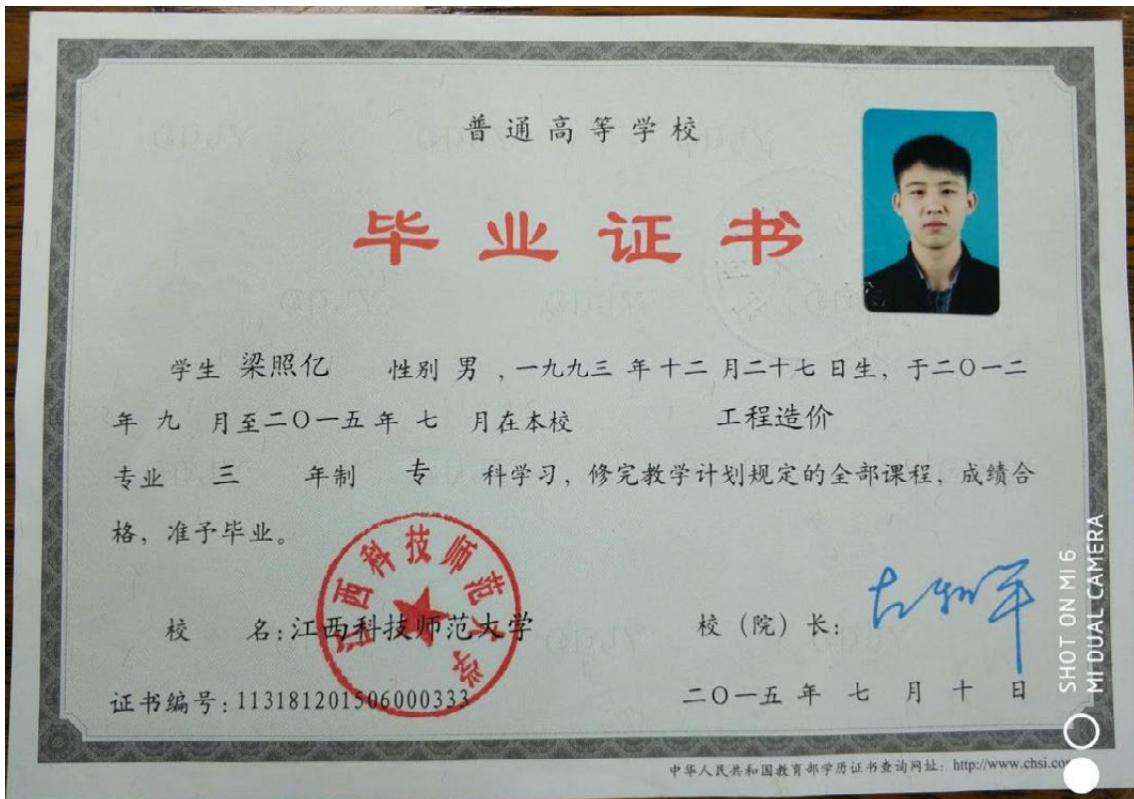 普通高等学校
毕业证书
学生 梁照亿 性别 男 ,一九九三 年 十二 月二十七 日生，于二〇一二
年 九 月至二〇一五 年 七 月在本校 工程造价
专业 三 年制 专 科学习，修完教学计划规定的全部课程，成绩合
格，准予毕业。
江西科技师范大学
校 名:江西科技师范大学
校（院）长:
证书编号:113181201506000333
二〇一五 年 七 月 十 日
中华人民共和国教育部学历证书查询网址: http://www.chsi.co
SHOT ON MI 6
MI DUAL CAMERA